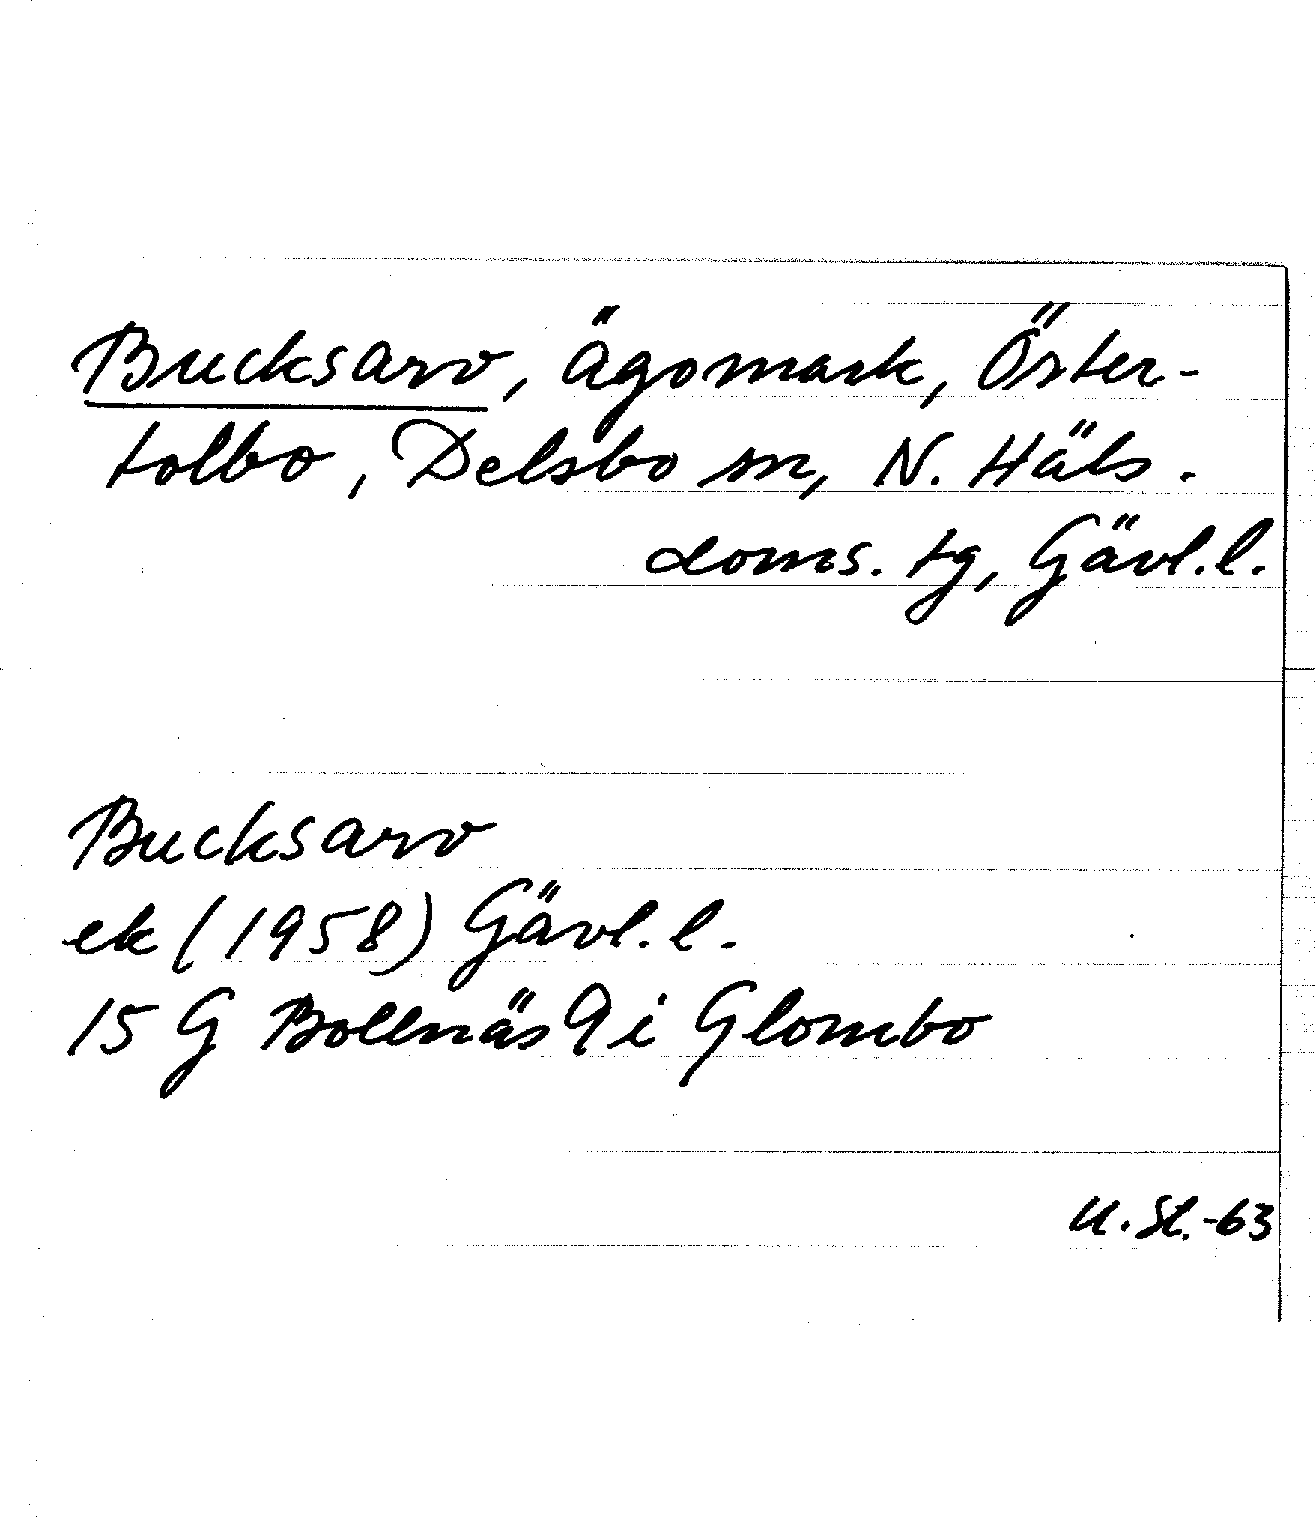 Bucksarv, ägomark, Öster-
tolbo, Delsbo sn, N. Häls.
doms. tg, Gävl.l.
Bucksarv
ek (1958) Gävl. l.
15 G Bollnäs 9 i Glombo
U. St. -63